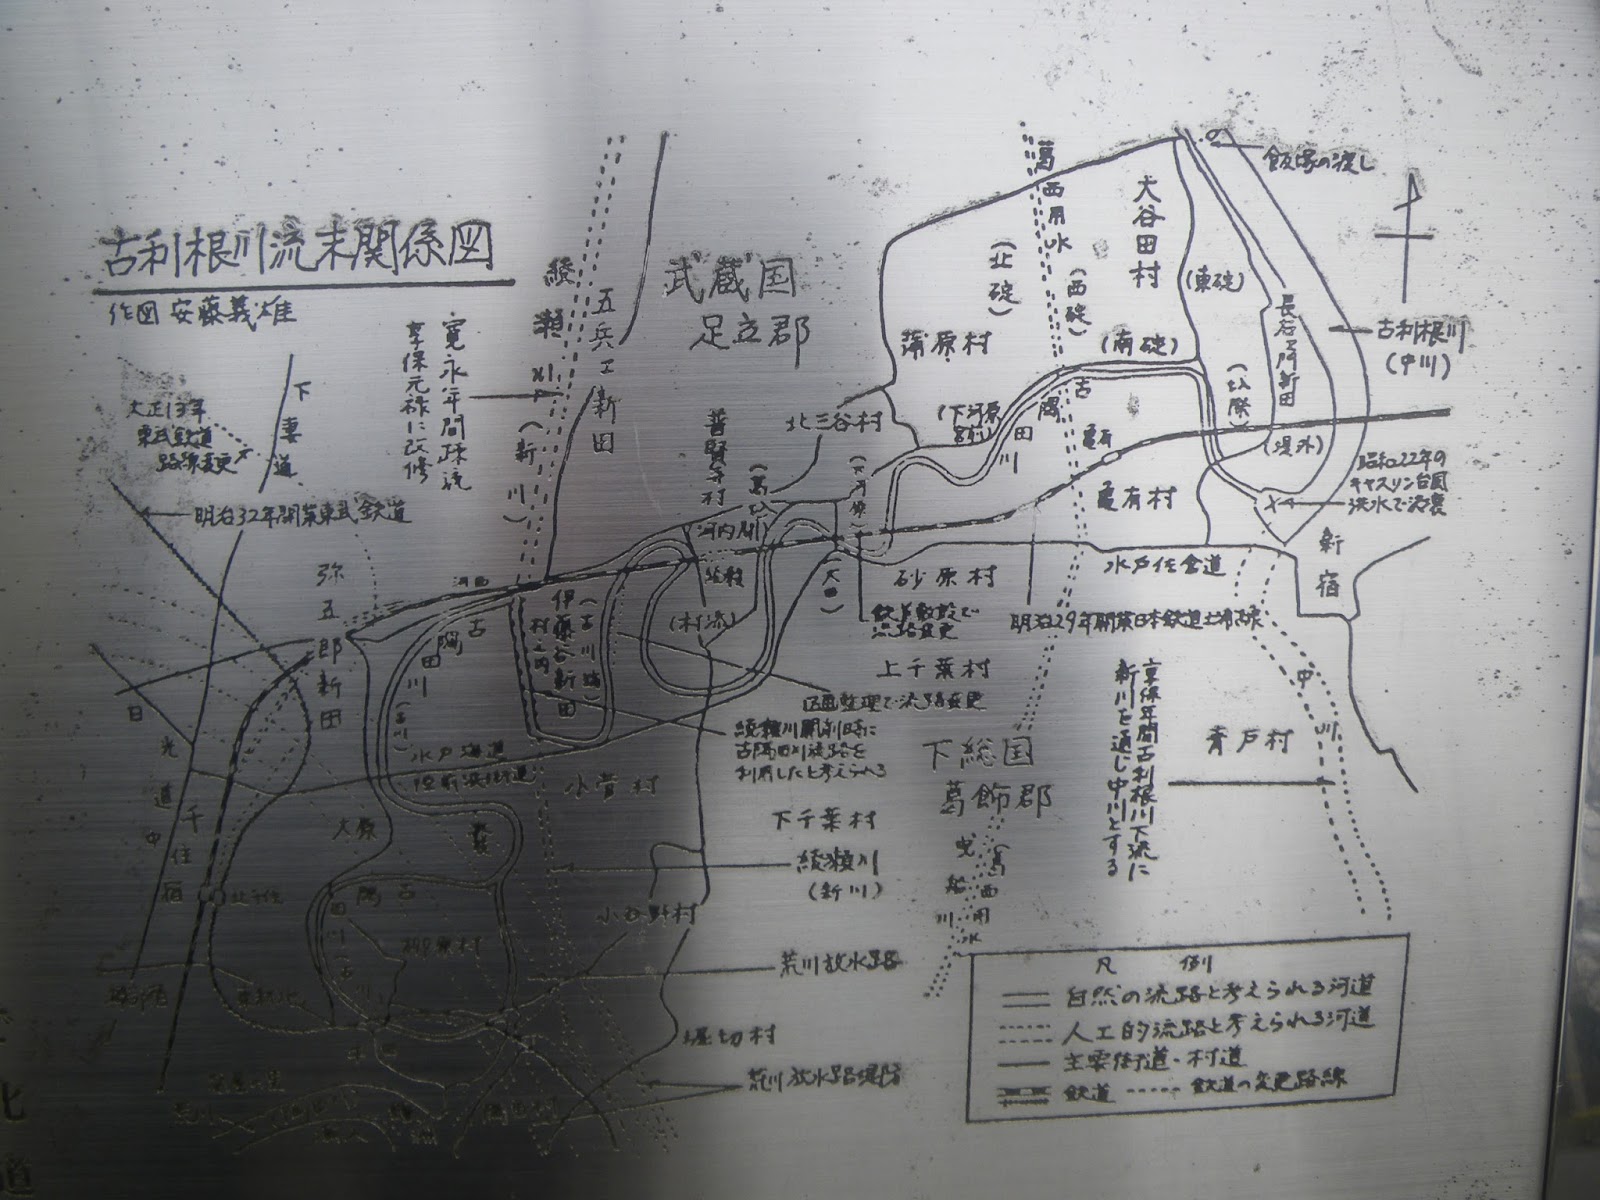 古利根川流末関係図
作図 安藤義雄
寛永年間疎流
享保元禄に改修
綾瀬川(新川)
五兵エ新田
武蔵国
足立郡
葛西用水
(北碇)
(西碇)
大谷田村
(東碇)
(南碇)
飯塚の渡し
古利根川
(中川)
長右ヱ門新田
蒲原村
北三谷村
普賢寺村
(下河原
古隅田川
亀有
亀有村
(堤外)
昭和22年の
キャスリン台風
洪水で決壊
新宿
下妻道
大正13年
東武鉄道
路線変更
明治32年開業東武鉄道
弥五郎新田
河内
古隅田川(古川)
伊藤谷新田
村之内
(村流)
(大田)
砂原村
水戸佐倉道
明治29年開業日本鉄道土浦線
鉄道敷設で
流路変更
上千葉村
区画整理で流路変更
綾瀬川開削時に
古隅田川流路を
利用したと考えられる
下総国
葛飾郡
享保年間古利根川下流に
新川を通し中川とする
中川
青戸村
水戸海道
小菅村
下千葉村
綾瀬川
(新川)
曳船川
(葛西用水
日光道中
千住宿
北千住
大原
古隅田川(古川)
柳原村
小谷野村
荒川放水路
堀切村
荒川放水路堤防
凡 例
自然の流路と考えられる河道
人工的流路と考えられる河道
主要街道・村道
鉄道 鉄道の変更路線
北
道